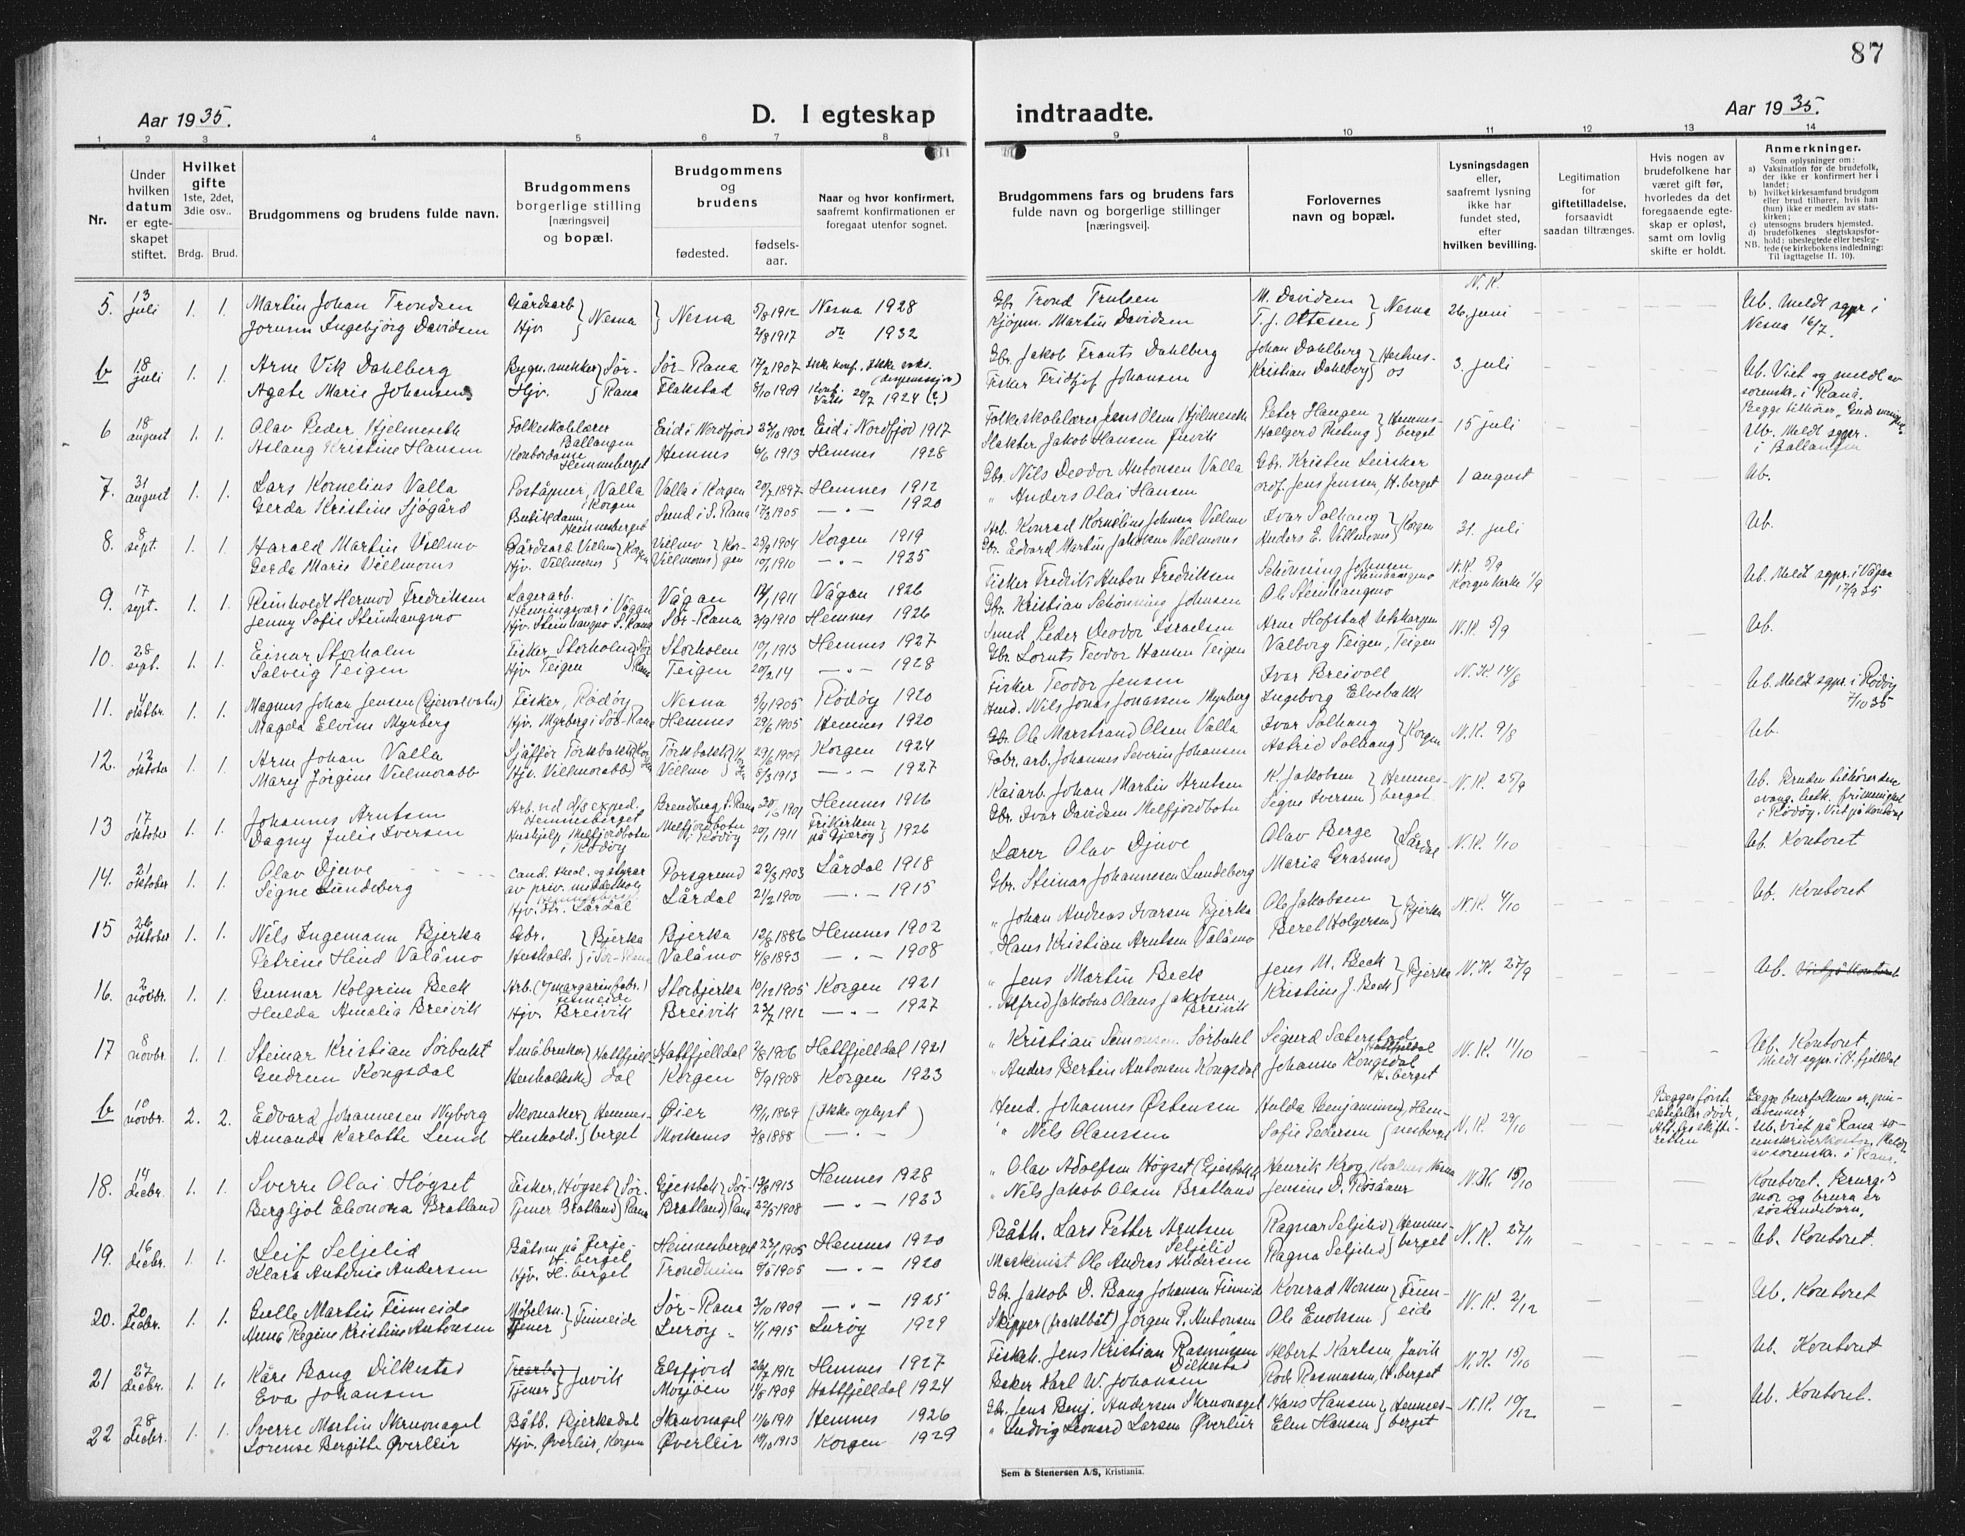 87
Aar 1935.
D. I egteskap
indtraadte.
Aar 1935.
1 2 3 4 5 6 7 8 9 10 11 12 13 14
Nr.
Under hvilken datum er egteskapet stiftet.
Hvilket gifte 1ste, 2det, 3die osv..
Brdg. Brud.
Brudgommens og brudens fulde navn.
Brudgommens borgerlige stilling [næringsvei] og bopæl.
Brudgommens og brudens
fødested. fødsels-aar.
Naar og hvor konfirmert, saafremt konfirmationen er foregaat utenfor sognet.
Brudgommens fars og brudens fars fulde navn og borgerlige stillinger [næringsvei].
Forlovernes navn og bopæl.
Lysningsdagen eller, saafremt lysning ikke har fundet sted, efter hvilken bevilling.
Legitimation for giftetilladelse, forsaavidt saadan tiltrænges.
Hvis nogen av brudefolkene har været gift før, hvorledes da det foregaaende egteskap er opløst, samt om lovlig skifte er holdt.
Anmerkninger.
Som oplysninger om:
a) Vaksination for de brudefolk, der ikke er konfirmert her i landet;
b) hvilket kirkesamfund brudgom eller brud tilhører, hvis han (hun) ikke er medlem av statskirken;
c) utensogns bruders hjemsted.
d) brudefolkenes slegtskapsforhold: ubeslegtede eller beslegtede (se kirkebokens indledning: Til iagttagelse II. 10).
NB.
5. 13 juli 1. 1. Martin Johan Trondsen Gårdsarb } Nesna } Nesna 5/8 1912 Nesna 1928 Gbr. Trond Trulsen M. Davidsen } Nesna N.K. 26. juni Ub. Meldt sgpr i
Jorunn Ingebjörg Davidsen Hjv. 2/8 1917 do 1932 Kjøpm. Martin Davidsen T. J. Ottesen Nesna 16/7.
b 18 juli 1. 1. Arne Vik Dahlberg Bygn.snekker } Sör-Rana Sör-Rana 17/2 1907 Gbr. Jakob Frants Dahlberg Johan Dahlberg 3. juli
Agate Marie Johansen Hjv. Flakstad 8/10 1909 1924 (?) Fisker Fridtjof Johansen Kristian Dahlberg
6 18 august 1. 1. Olav Peder Hjelmeseth Folkeskolelærer Ballangen Eid i Nordfjord 1902 Eid i Nordfjord 1917 Folkeskolelærer Jens Olsen Hjelmeseth Peter Haugen } Hemnesberget 15 juli Ub. Meldt sgpr.
Aslaug Kristine Hansen Kontordame Hemnesberget Hemnes 6/6 1913 Hemnes 1928 Slakter Jakob Hansen Juvik i Ballangen
7. 31 august 1. 1. Lars Kornelius Valla Poståpner, Valla i Korgen Valla i Korgen 20/7 1897 Hemnes 1912 Gbr. Nils Deodor Antonsen Valla Gbr. Kristen Leirskar 1 august Ub.
Gerda Kristine Sjögård Butikdame, Hemnesberget Sund i S. Rana 17/3 1905 — „ — 1920 „ Anders Olai Hansen ordf. Jens Jensen, H.berget
8. 8 sept. 1. 1. Harald Martin Villmo Gårdsarb. Villmo } Korgen Villmo } Korgen 25/9 1904 Korgen 1919 Arb. Konrad Kornelius Johnsen Villmo Ivar Solhaug } Korgen 31. juli Ub.
Gerda Marie Villmones Hjv. Villmones Villmones 10/1 1910 — „ — 1925 Gbr. Edvard Martin Jakobsen Villmones Anders E. Villmones
9. 17 sept. 1. 1. Reinholdt Hermod Fredriksen Lagerarb. Henningsvær i Vågan Vågan 1911 Vågan 1926 Fisker Fredrik Anton Fredriksen Schönning Johnsen N.K. 5/9 Ub. Meldt sgpr. i Vågan
Jenny Sofie Steinhaugmo Hjv. Steinhaugmo S. Rana Sör-Rana 3/9 1910 Hemnes 1926 Gbr. Kristian Schönning Johnsen Ol. Steinhaugmo Korgen kirke 1/9 17/9 35
10. 28 sept. 1. 1. Einar Storholm Fisker Storholmen } Sör-Rana Storholen 10/1 1913 Hemnes 1927 Smed Peder Deodor Israelsen Arne Hofstad N.K. 5/9 Ub.
Solveig Teigen Hjv. Teigen Teigen 20/2 14 — „ — 1928 Gbr. Lornts Teodor Hansen Teigen Valborg Teigen, Teigen
11. 4 oktbr. 1. 1. Magnus Johan Jensen Fisker, Rödöy Nesna 5/4 1905 Rödöy 1920 Fisker Teodor Jensen Ivar Breivoll N.K. 14/8 Ub. Meldt sgpr. i Rödöy
Magda Elvine Myrberg Hjv. Myrberg i Sör-Rana Hemnes 29/6 1905 Hemnes 1920 Hmd. Nils Jonas Jonassen Myrberg Ingeborg Elvebakk 7/10 35
12. 12 oktober 1. 1. Arne Johan Valla Sjåffør Forsbakk Forsbakk 29/6 1909 Korgen 1924 Gbr. Ole Marstrand Olsen Valla Ivar Solhaug } Korgen N.K. 9/8 Ub.
Mary Jörgine Villmorabb Hjv. Villmorabb Villmo 8/3 1913 — „ — 1927 Fabr. arb. Johannes Severin Johansen Astrid Solhaug
13 17 oktober 1. 1. Johannes Arntsen Arb. ved d/s exped. Hemnesberget Brendberg, S. Rana 20/6 1901 Hemnes 1916 Kaiarb. Johan Martin Arntsen K. Jakobsen } Hemnesberget N.K. 25/9 Ub. Bruden tilhører den
Dagny Julie Iversen Hushjelp Melfjordbotn i Rödöy Melfjordbotn i Rödöy 20/1 1911 Frikirken på Gjærøy } 1926 Gbr. Ivar Davidsen Melfjordbotn Signe Iversen evang. luth. frimenighet i Rödöy. Viet på kontoret
14. 21 oktober 1. 1. Olav Djuve cand. theol. og styrer av priv. middelskole Hemnesberget Porsgrund 22/3 1903 Lårdal 1918 Lærer Olav Djuve Olav Berge } Lårdal N.K. 1/10 Ub. Kontoret
Signe Lundeberg Hjv. Lårdal Lårdal 21/2 1900 — „ — 1915 Gbr. Steinar Johannesen Lundeberg Maria Grasmo
15 26 oktober 1. 1. Nils Ingemann Bjerka Gbr. } Bjerka i Sör-Rana Bjerka 12/8 1886 Hemnes 1902 „ Johan Andreas Ivarsen Bjerka Ole Jakobsen } Bjerka N.K. 4/10 Ub. Kontoret
Petrine Hend Valåmo Hushold. Valåmo 4/8 1893 — „ — 1908 „ Hans Kristian Arntsen Valåmo Berel Holgersen
16. 2 novbr. 1. 1. Gunnar Kolgrim Beck Arb. (v/margarinfabr.) Finneide Storbjerka 10/12 1905 Korgen 1921 „ Jens Martin Beck Jens M. Beck } Bjerka N.K. 27/9 Ub.
Hulda Amalia Breivik Hjv. Breivik Breivik 27/7 1912 — „ — 1927 „ Alfred Jakobus Olaus Jakobsen Breivik Kristine J. Beck
17 8 novbr. 1. 1. Steinar Kristian Sörbukt Småbruker } Hattfjelldal Hattfjelldal 7/8 1906 Hattfjelldal 1921 „ Kristian Simonsen Sörbukt Sigurd Sæterstad Hattfjelldal N.K. 11/10 Ub. Kontoret
Gudrun Kongsdal Husholdsk. Korgen 8/9 1908 Korgen 1923 „ Anders Bertin Antonsen Kongsdal Johanne Kongsdal H.berget Meldt sgpr. i H.fjelldal
b 10 novbr. 2. 2. Edvard Johannesen Nyborg Skomaker } Hemnesberget Øier 19/1 1869 (Ikke oplyst) Hmd. Johannes Östensen Hulda Benjaminsen } Hemnesberget N.K. 29/10 Begges første ektefeller døde.
Amanda Karlotte Lund Hushold. Moskenes 3/8 1888 (— „ —) „ Nils Olaussen Sofie Pedersen
18. 14 decbr. 1. 1. Sverre Olai Högset Fisker, Högset } Sör-Rana Gjesbakk } Sör-Rana 1913 Hemnes 1928 „ Olav Adolfsen Högset (Gjesbakk) Henrik Krog Kvalnes Nesna N.K. 15/10 Kontoret. Brurg.s
Bergljot Eleonora Bratland Tjener Bratland Bratland 22/5 1908 — „ — 1923 „ Nils Jakob Olsen Bratland Jensine D. Rösåaur mor og brura er söskendebarn.
19. 16 decbr. 1. 1. Leif Seljelid Båtsm. på ferje H.berget Hemnesberget 1905 Hemnes 1920 Båtb. Lars Petter Arntsen Seljelid Ragnar Seljelid } Hemnesberget N.K. 27/11 Ub. Kontoret.
Klara Antonie Andersen Hjv. H.berget Trondheim 1905 — „ — 1920 Maskinist Ole Andreas Andersen Ragna Seljelid
20. 20 decbr. 1. 1. Gulle Martin Finneide Möbelsn. } Finneide Sör-Rana 3/10 1909 — „ — 1925 Gbr. Jakob D. Bang Johansen Finneide Konrad Monsen } Finneide N.K. 2/12 Ub. Kontoret
Anna Regine Kristine Antonsen Tjener Luröy 4/1 1915 Luröy 1929 Skipper (fraktbåt) Jörgen P. Antonsen Ole Enoksen
21 27 decbr. 1. 1. Kåre Bang Dilkestad } Juvik Elsfjord 26/7 1912 Hemnes 1927 Fiskeh. Jens Kristian Rasmussen Dilkestad Albert Karlsen, Juvik N.K. 15/10 Ub. Kontoret
Eva Johansen Tjener Mosjöen 11/8 1909 Hattfjelldal 1924 Baker Karl W. Johansen Rod. Rasmussen, H.berget
22 28 decbr. 1. 1. Sverre Martin Skravnagel Båtb. Bjerkadal Skravnagel 11/6 1911 Hemnes 1926 Gbr. Jens Benj. Andersen Skravnagel Hans Hansen } Hemnesberget N.K. 10/12 Ub. Kontoret.
Lorense Bergitte Øverleir Hjv. Øverleir, Korgen Øverleir 19/10 1913 Korgen 1929 „ Ludvig Leonard Larsen Øverleir Elen Hansen
Sem & Stenersen A/S, Kristiania.